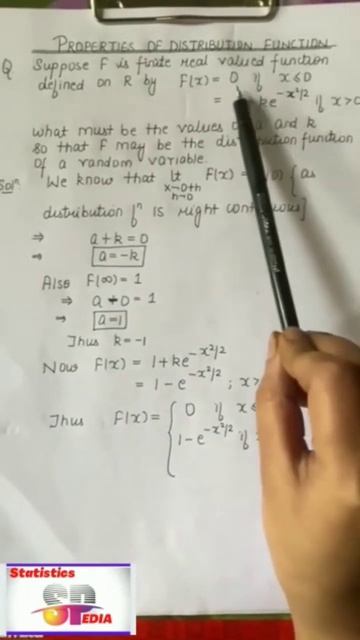 PROPERTIES OF DISTRIBUTION FUNCTION
Q Suppose F is finite real valued function
defined on R by F(x) = 0 if x≤0
= ke^{-x²/2} if x>0
what must be the values a and k
so that F may be the distribution function
of a random variable.
Solⁿ: We know that lt F(x) = {as
x→0+h
h→0
distribution fⁿ is right continuous]
⇒ a+k=0
⇒ a=-k
Also F(∞) = 1
⇒ a+0=1
⇒ a=1
Thus k=-1
Now F(x) = 1+ke^{-x²/2}
= 1-e^{-x²/2} ; x>
Thus F(x) = { 0 if x≤
1-e^{-x²/2} if
Statistics
PEDIA